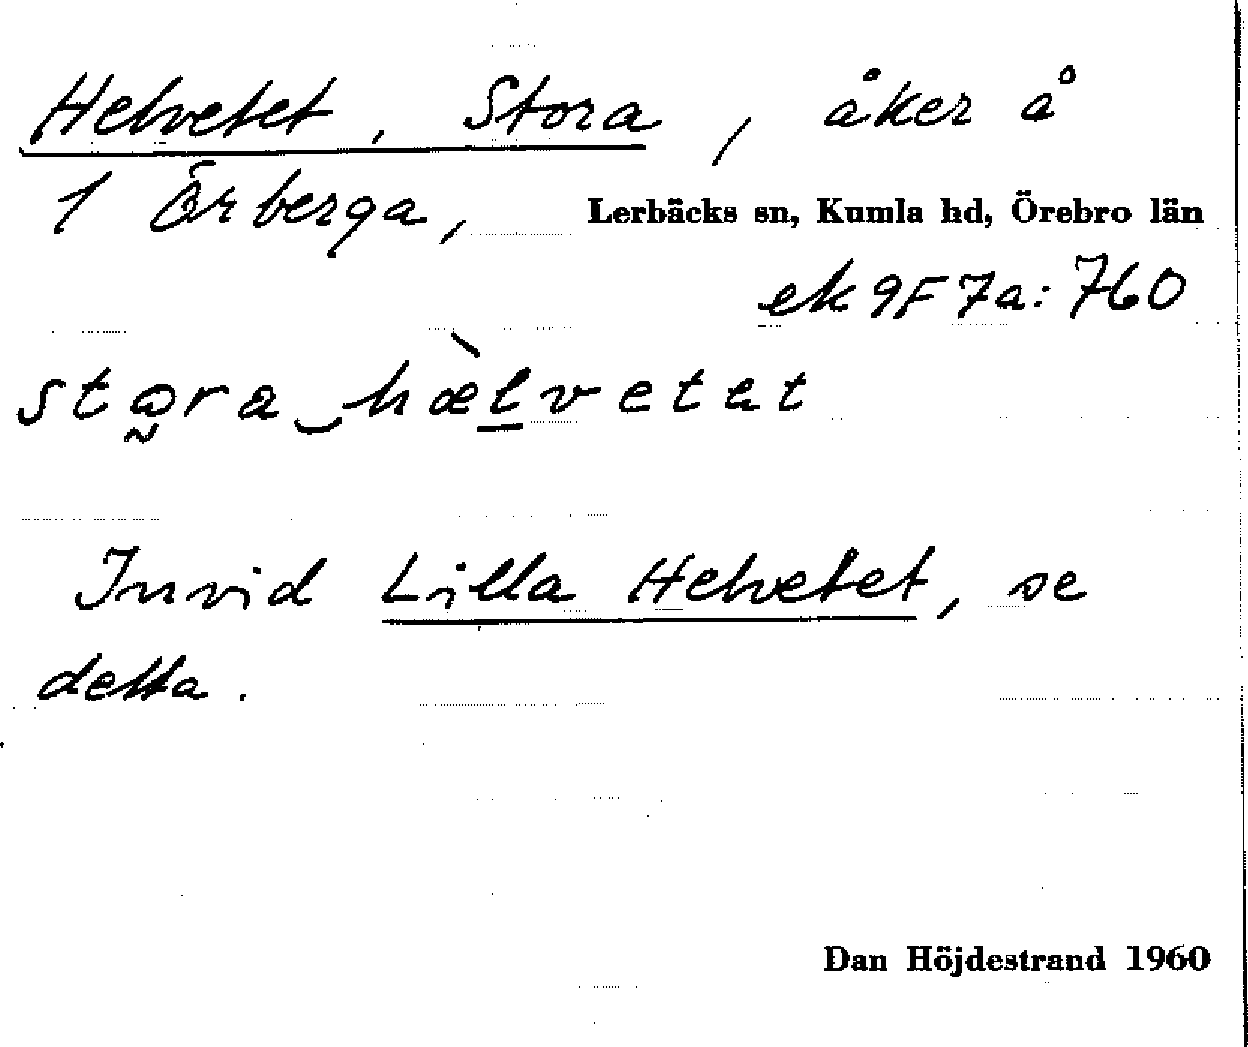 Helvetet, Stora, åker å
1 Örberga, Lerbäcks sn, Kumla hd, Örebro län
ek 9F 7a: 760
stɷ̰ra‿hæ̀l̲vetet
Invid Lilla Helvetet, se
detta.
Dan Höjdestrand 1960